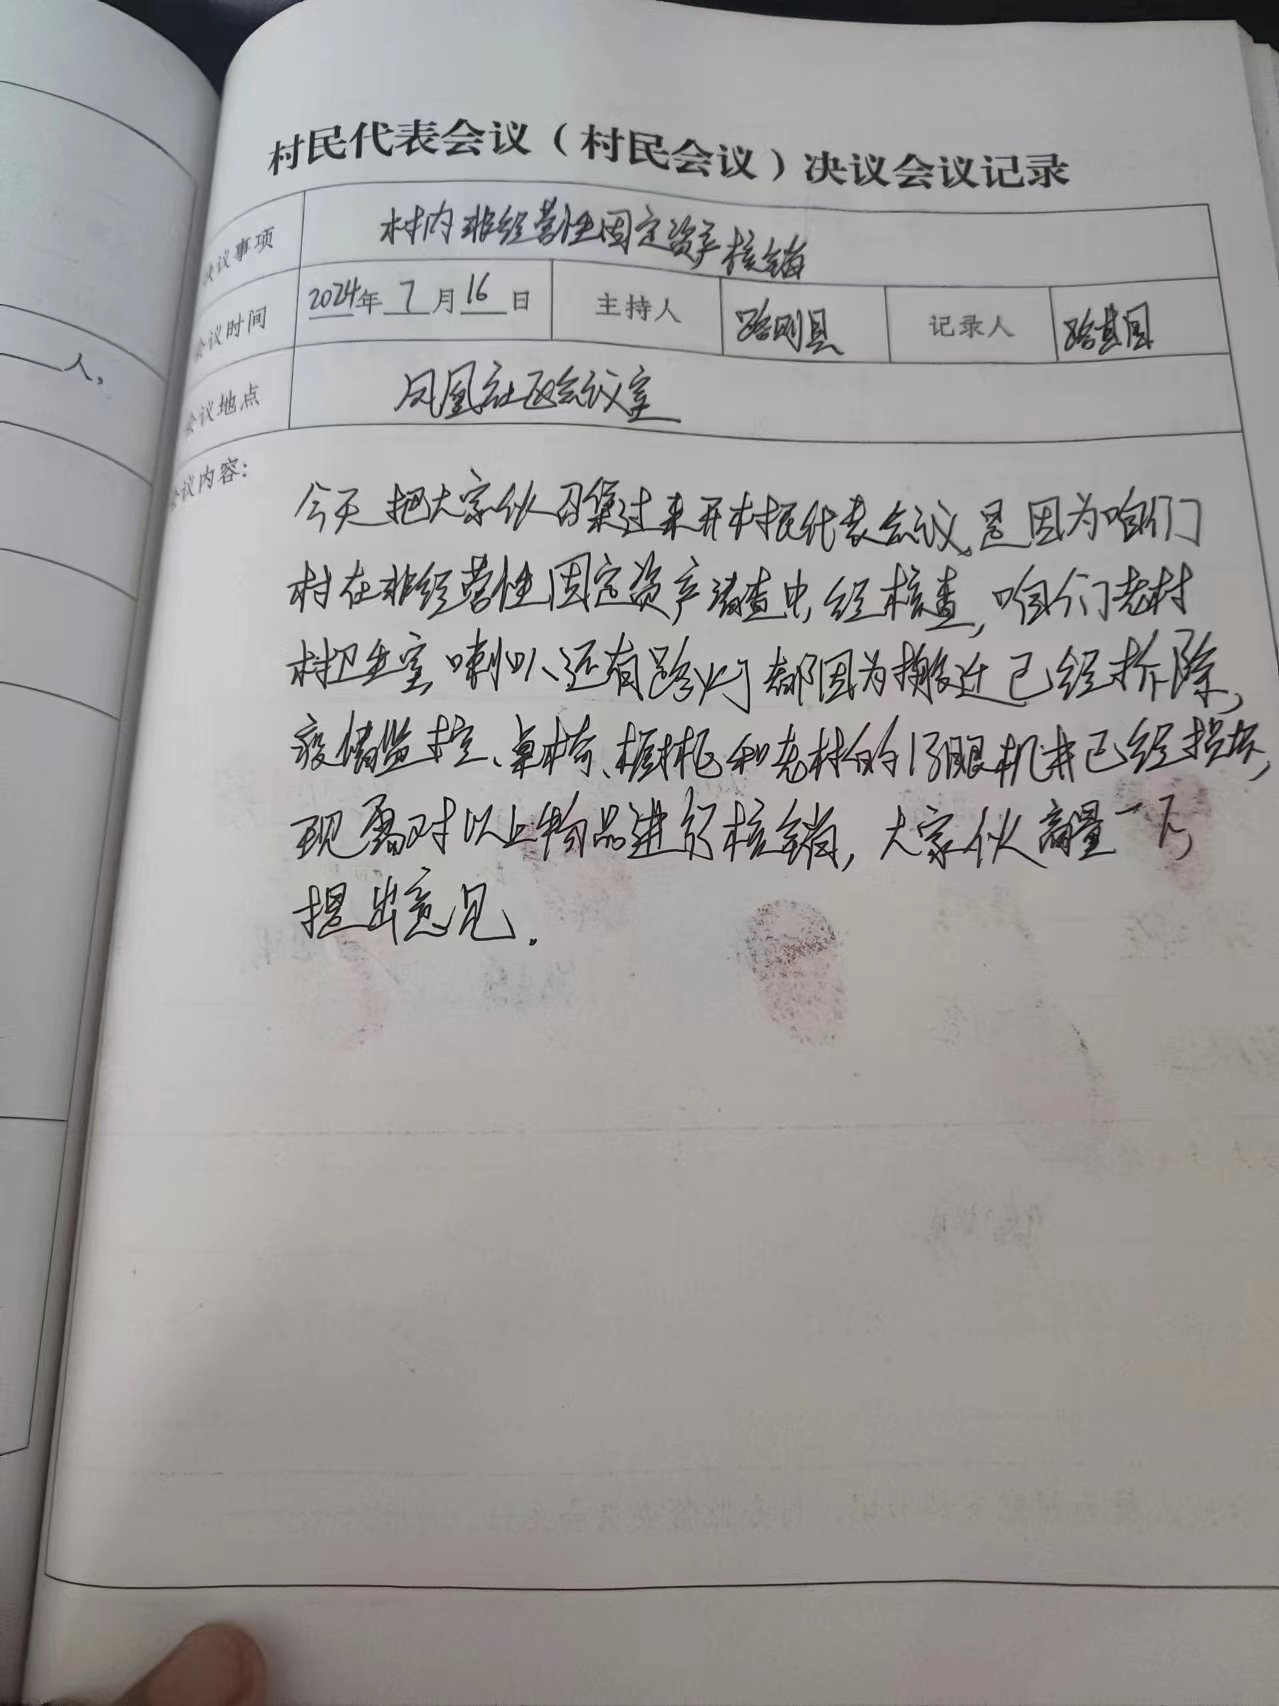 人,
村民代表会议（村民会议）决议会议记录
决议事项 村内非经营性固定资产核销
会议时间 2024年 7 月 16 日 主持人 路刚县 记录人 路其国
会议地点 凤凰社区会议室
会议内容:
今天把大家伙召集过来开村民代表会议,是因为咱们
村在非经营性固定资产清查中,经核查,咱们老村
村卫生室、喇叭、还有路灯都因为搬迁已经拆除,
疫情监控、桌椅、橱柜和老村的13眼机井已经损坏,
现需对以上物品进行核销,大家伙商量一下,
提出意见.